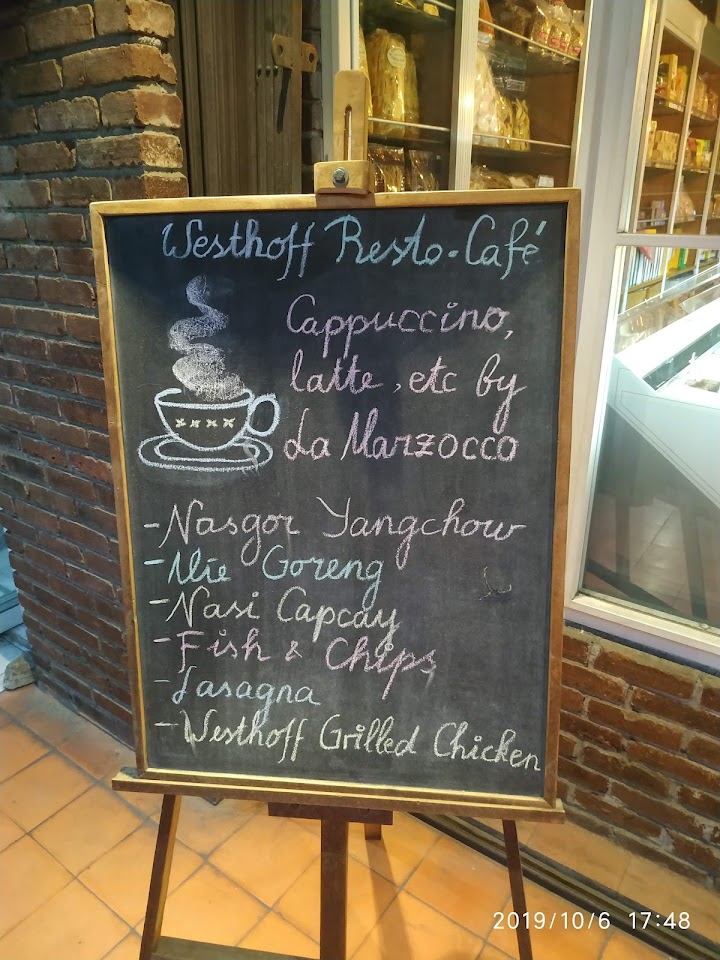 Westhoff Resto-Café
Cappuccino,
latte, etc by
La Marzocco
- Nasgor Yangchow
- Mie Goreng
- Nasi Capcay
- Fish & Chips
- Lasagna
- Westhoff Grilled Chicken
2019/10/6 17:48